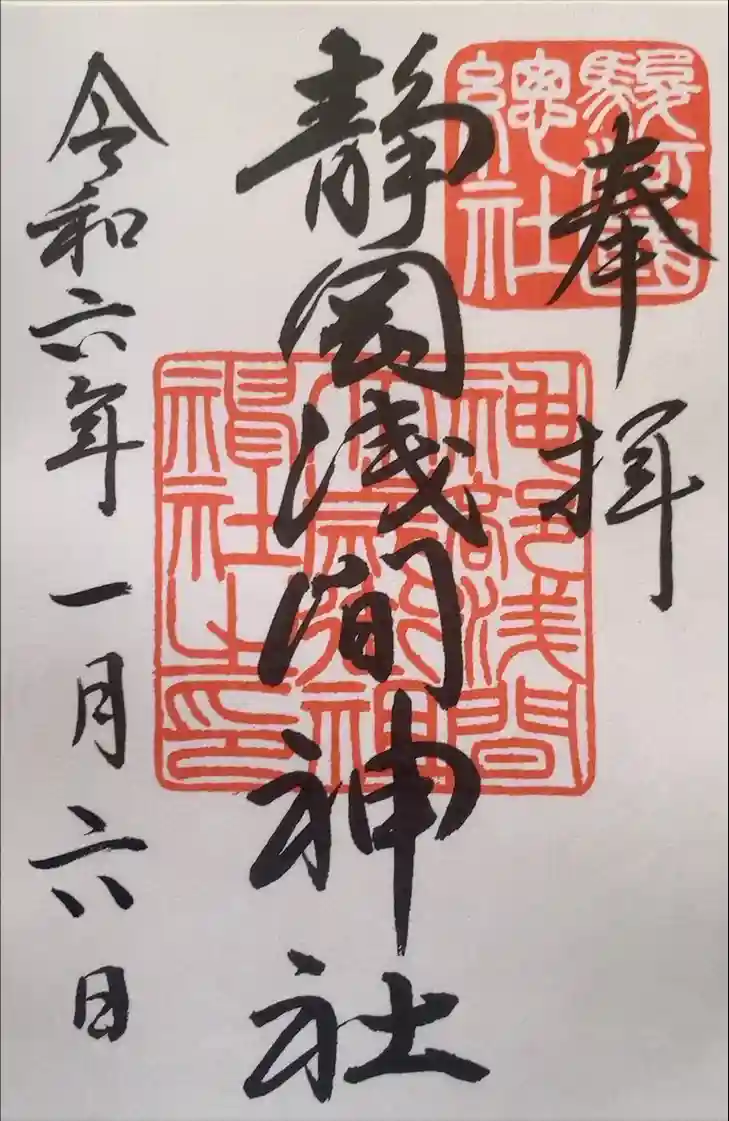 奉拝
駿河國
總社
静岡浅間神社
神部浅間
大歳御祖
神社之印
令和六年一月六日